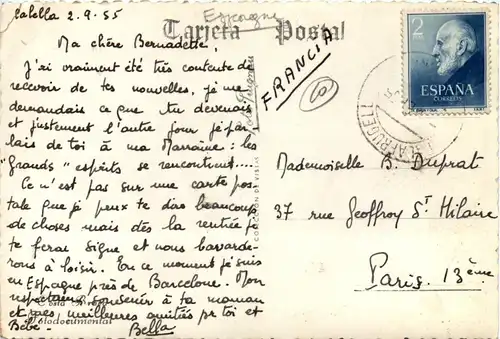 Calella 2.9.55
Espagne
Tarjeta Postal
FRANCIA
Ma chère Bernadette,
J'ai vraiment été très contente de
recevoir de tes nouvelles, je me
demandais ce que tu devenais
et justement l'autre jour je par-
lais de toi à ma Marraine : les
"Grands" esprits se rencontrent....
Ce n'est pas sur une carte pos-
tale que je peux te dire beaucoup
de choses mais dès la rentrée je
te ferai signe et nous bavarde-
rons à loisir. En ce moment je suis
en Espagne près de Barcelone. Mon
souvenir à ta maman
et meilleures amitiés pr toi et
Bébé.
Bella
Fotodocumental
2
ESPAÑA
CORREOS
Mademoiselle B. Duprat
37 rue Geoffroy St Hilaire
Paris. 13ème